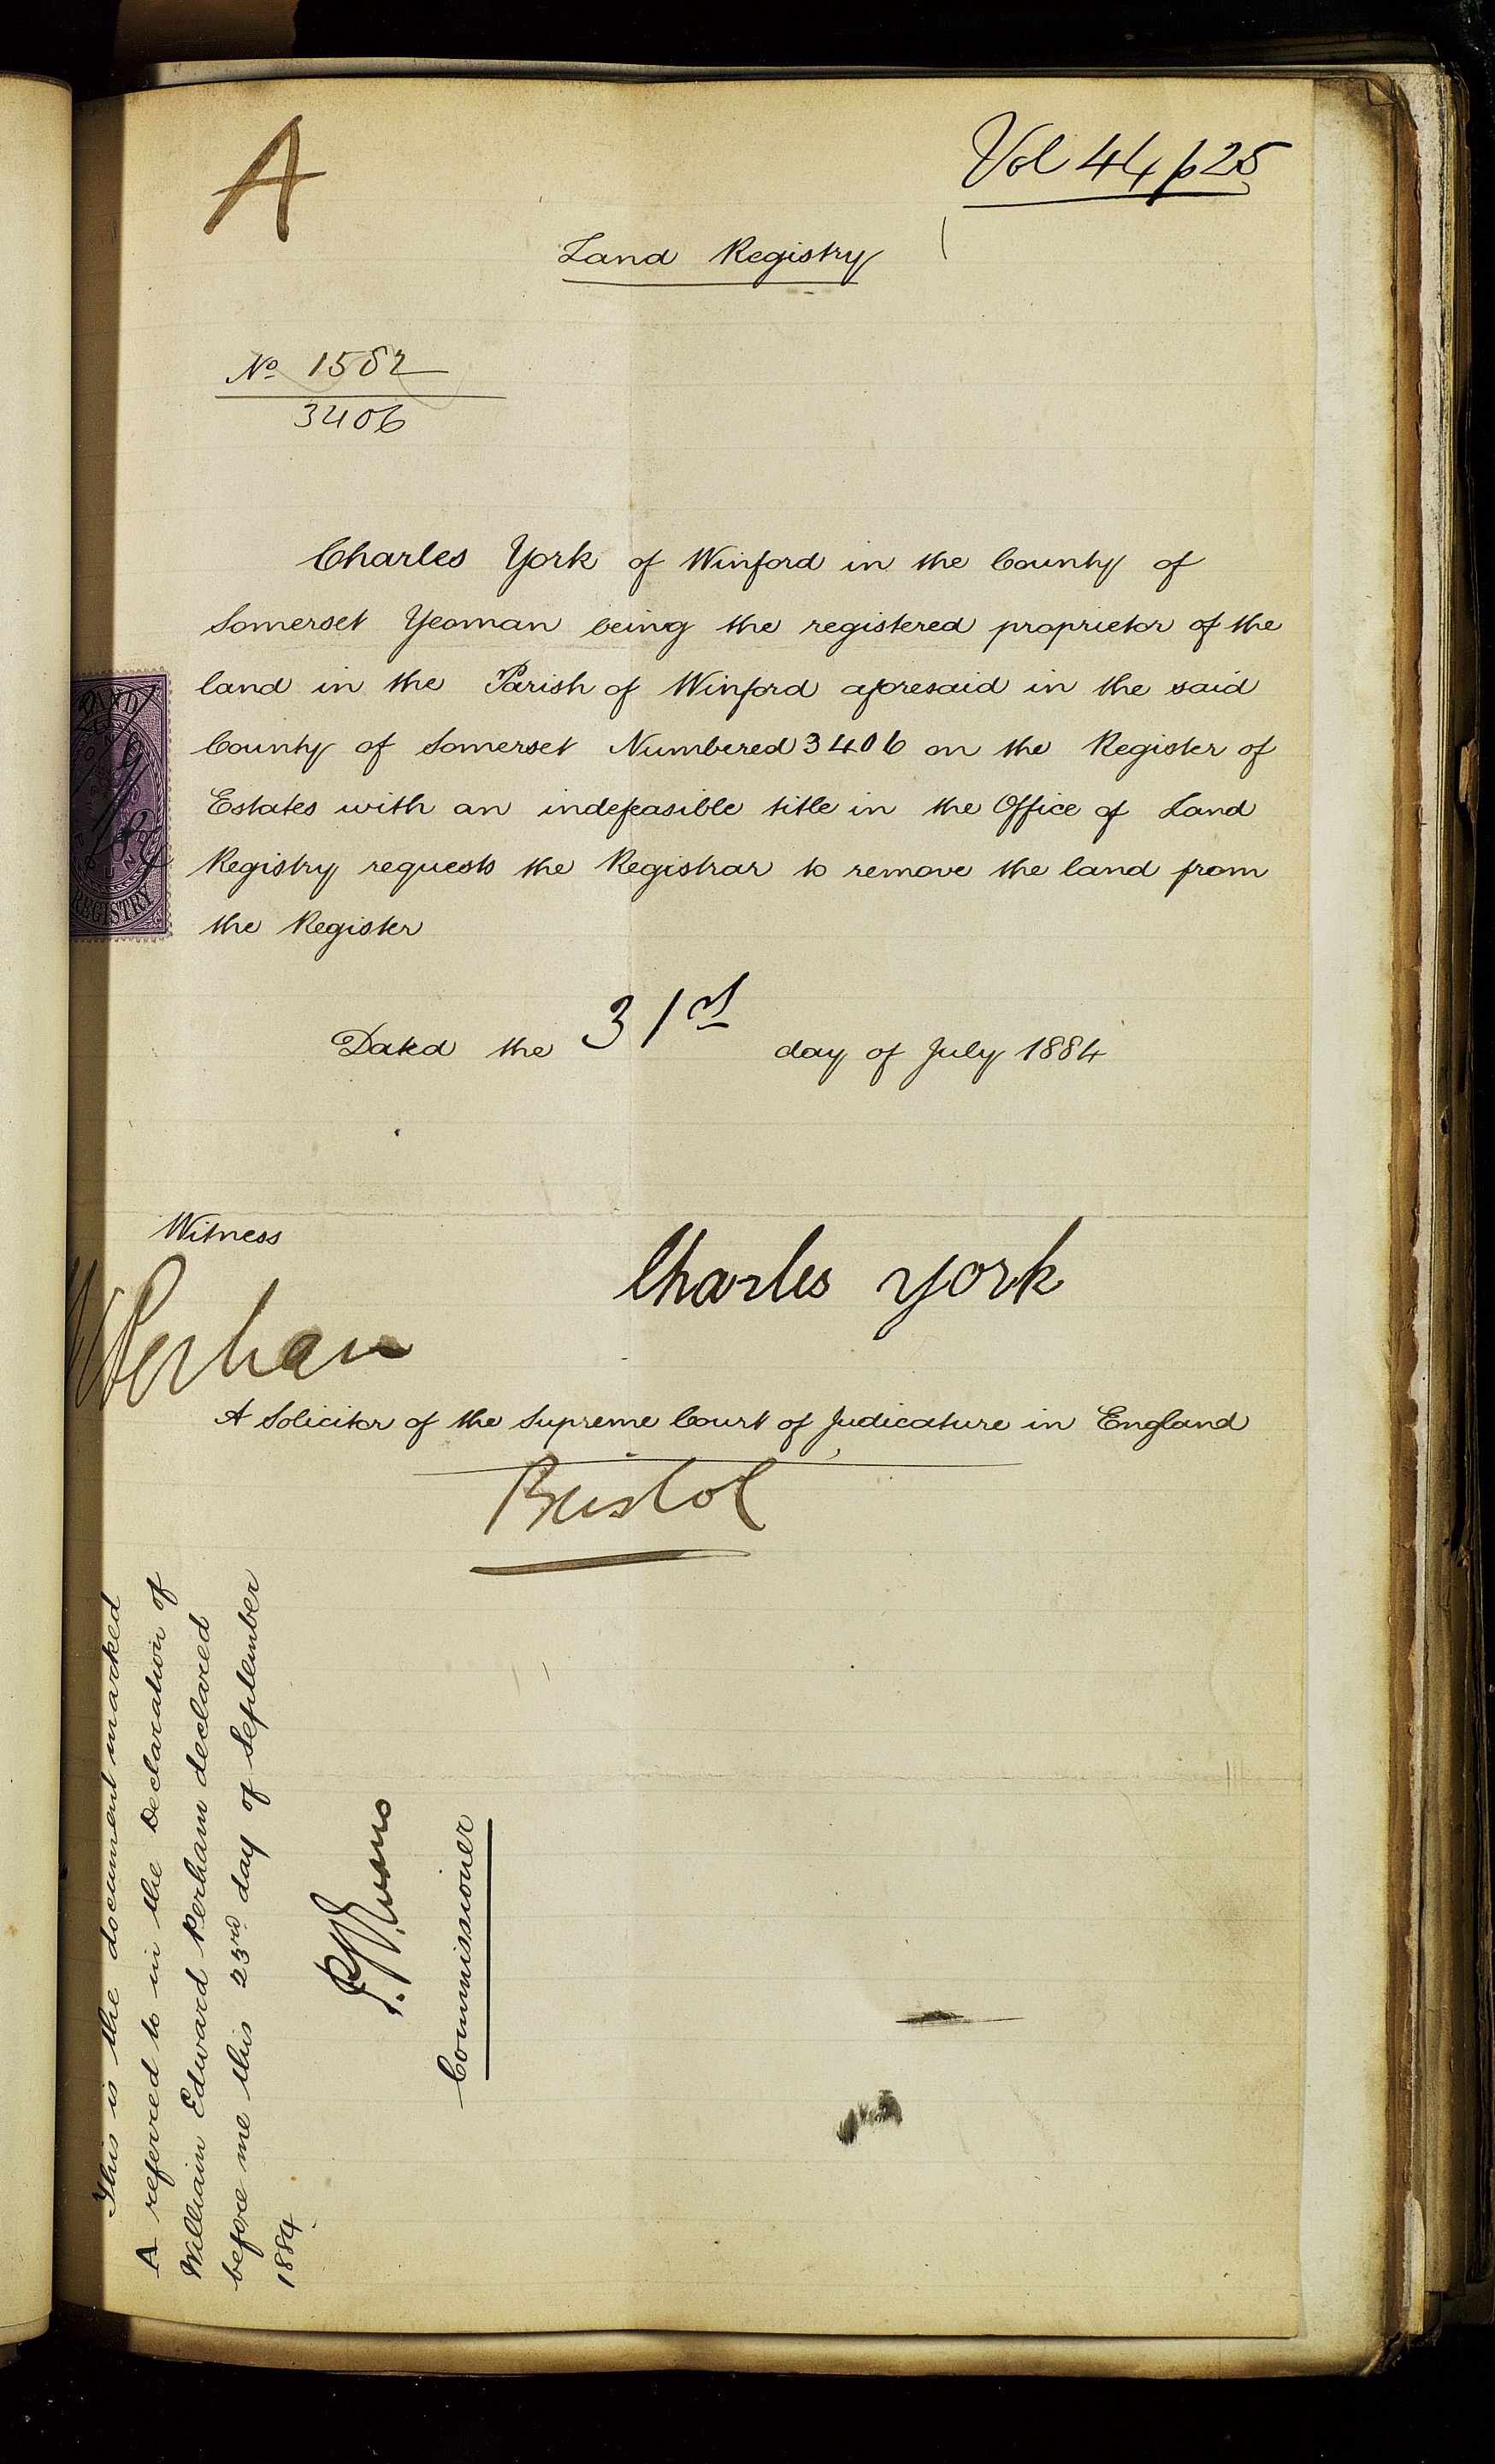 A
Vol 44 p 25
Land Registry
No 1582
3406
Charles York of Winford in the County of
Somerset Yeoman being the registered proprietor of the
land in the Parish of Winford aforesaid in the said
County of Somerset Numbered 3406 on the Register of
Estates with an indefeasible title in the Office of Land
Registry requests the Registrar to remove the land from
the Register
LAND
REGISTRY
Dated the 31st day of July 1884
Witness
Charles York
Perham
A Solicitor of the Supreme Court of Judicature in England
Bristol
This is the document marked
A referred to in the Declaration of
William Edward Perham declared
before me this 23rd day of September
1884
Evans
Commissioner